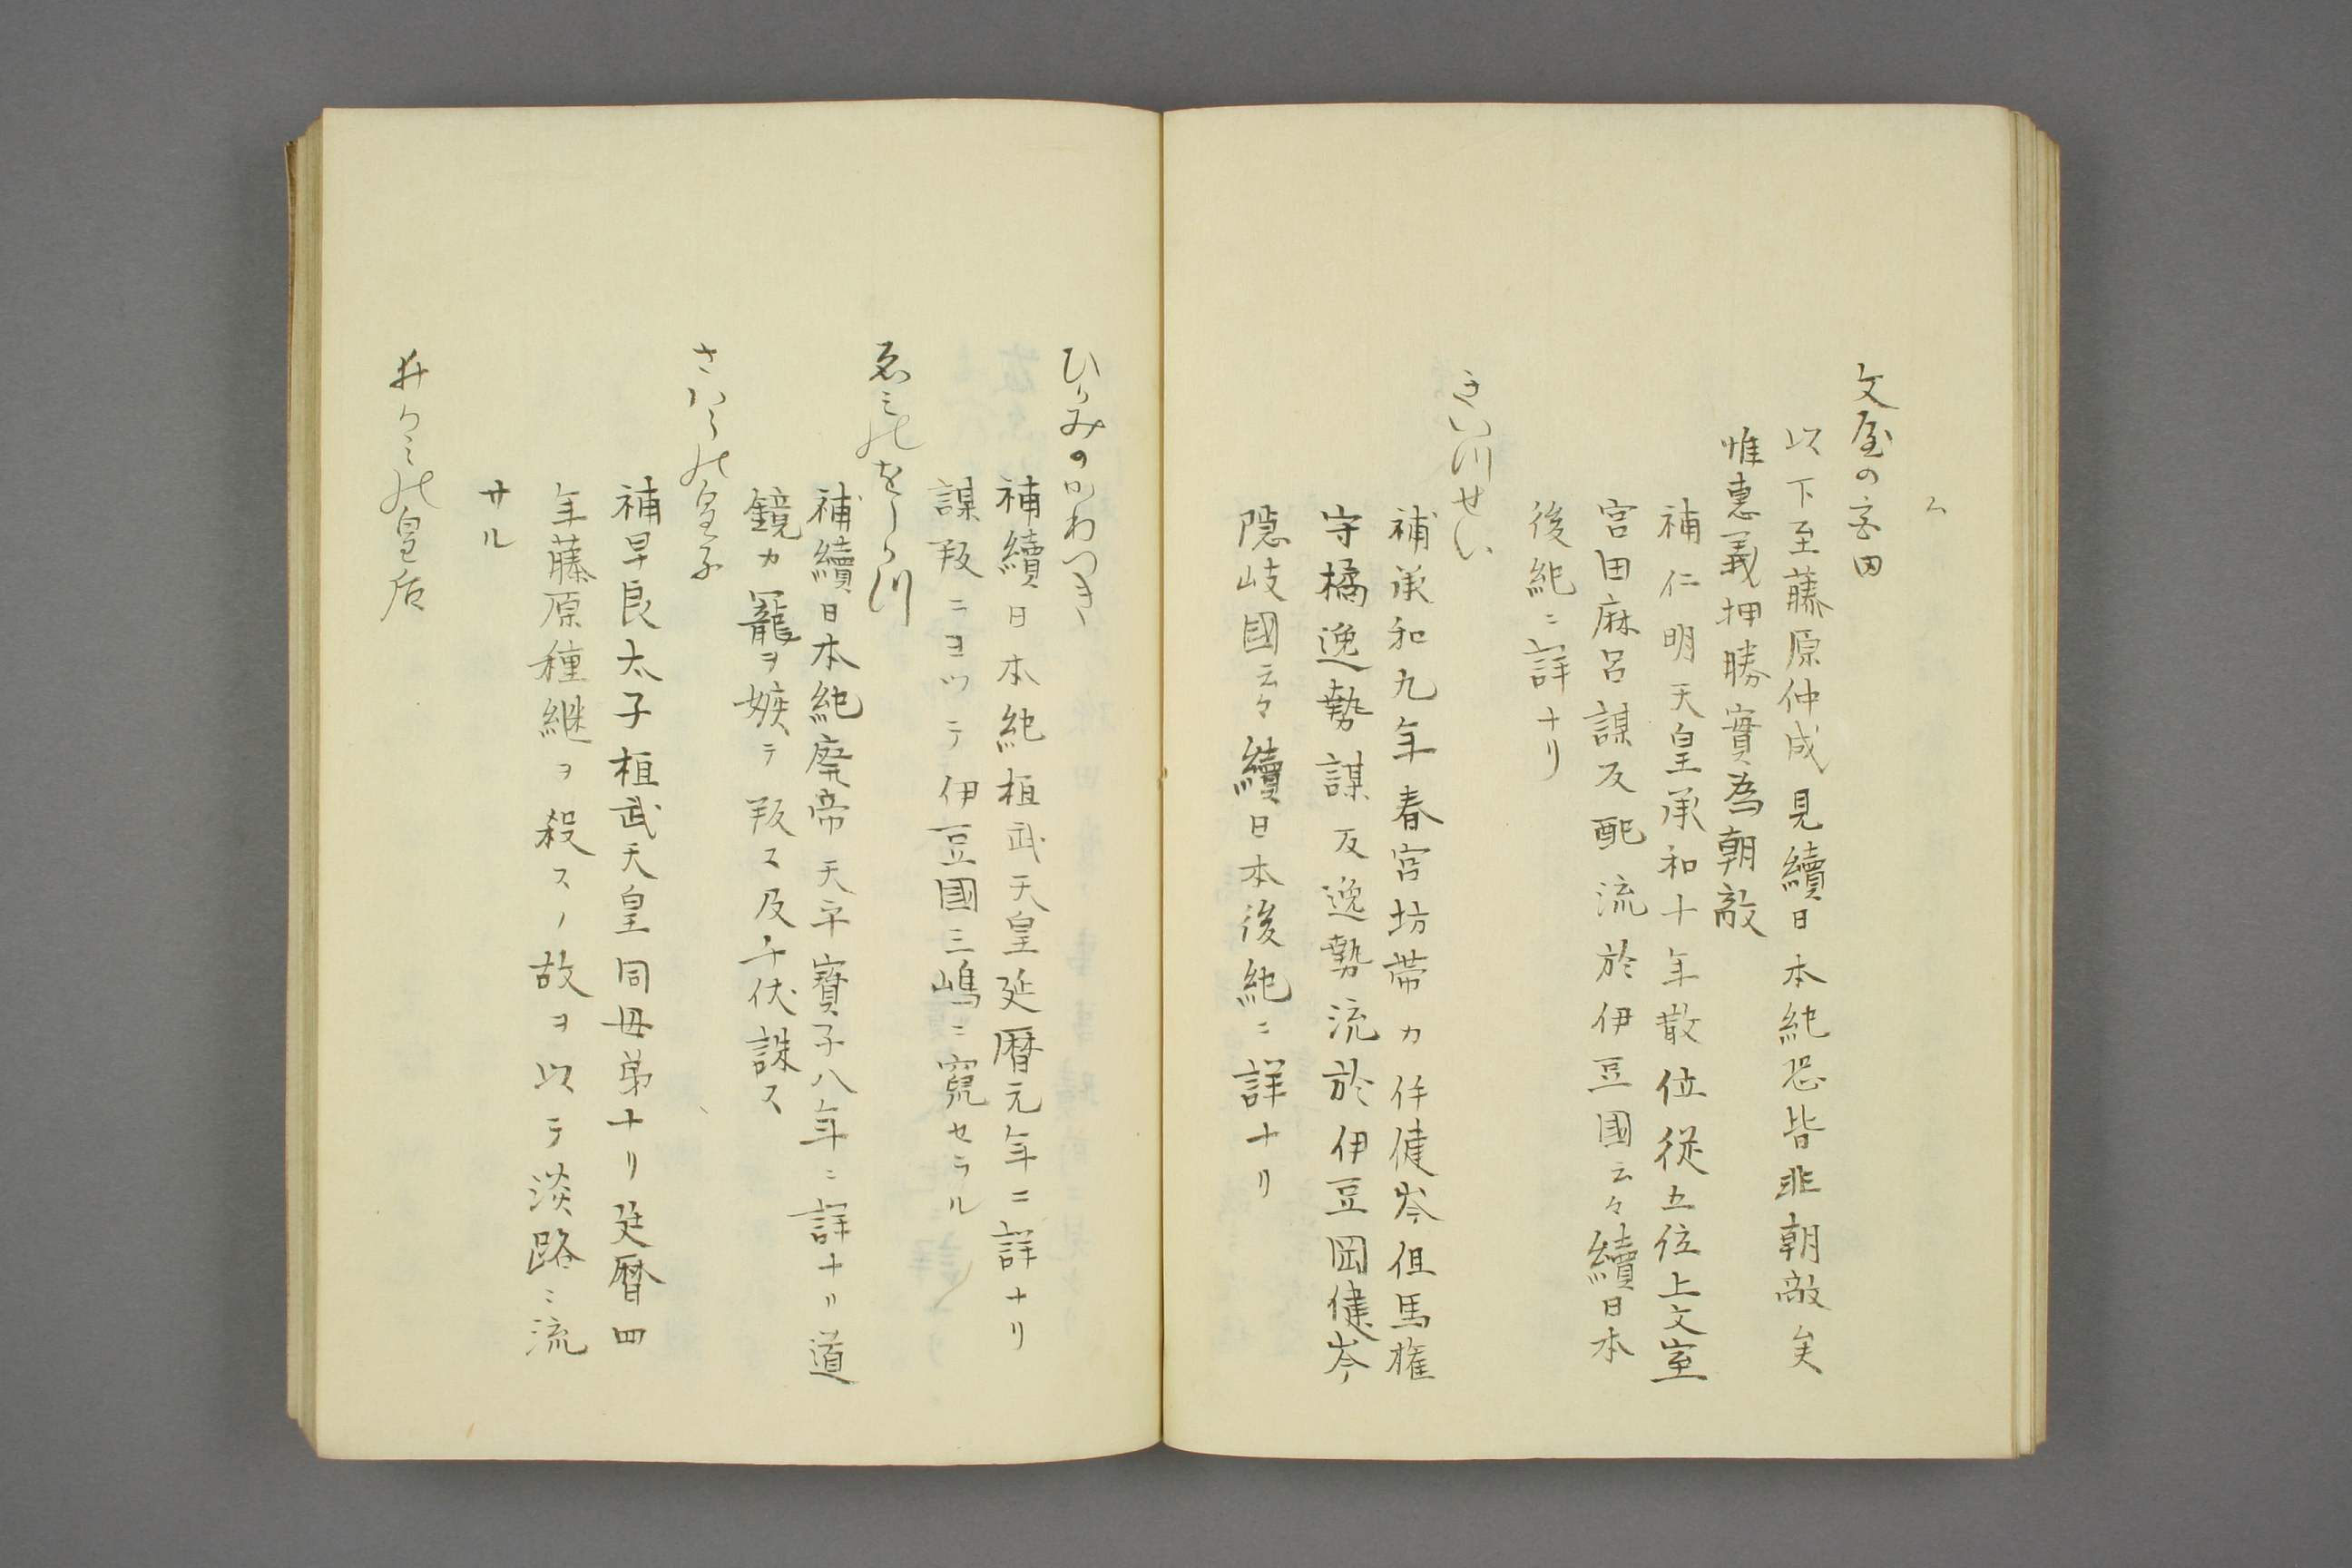 ム
文屋の宮田
以下至藤原仲成見續日本紀恐皆非朝敵矣
惟惠義押勝實為朝敵
補仁明天皇承和十年散位従五位上文室
宮田麻呂謀反配流於伊豆國云々續日本
後紀ニ詳ナリ
きい川せい
補承和九年春宮坊帯刀伴健岑但馬権
守橘逸勢謀反逸勢流於伊豆国健岑
隠岐國云々續日本後紀ニ詳ナリ
ひかみのかわつき
補續日本紀桓武天皇延暦元年ニ詳ナリ
謀叛ニヨツテ伊豆國三嶋ニ竄セラル
ゑミのをしかつ
補續日本紀廃帝天平寳子八年ニ詳ナリ道
鏡カ寵ヲ嫉テ叛ス及ヒ伏誅ス
さはらの皇子
補早良太子桓武天皇同母弟ナリ延暦四
年藤原種継ヲ殺スノ故ヲ以テ淡路ニ流
サル
井かみの皇后